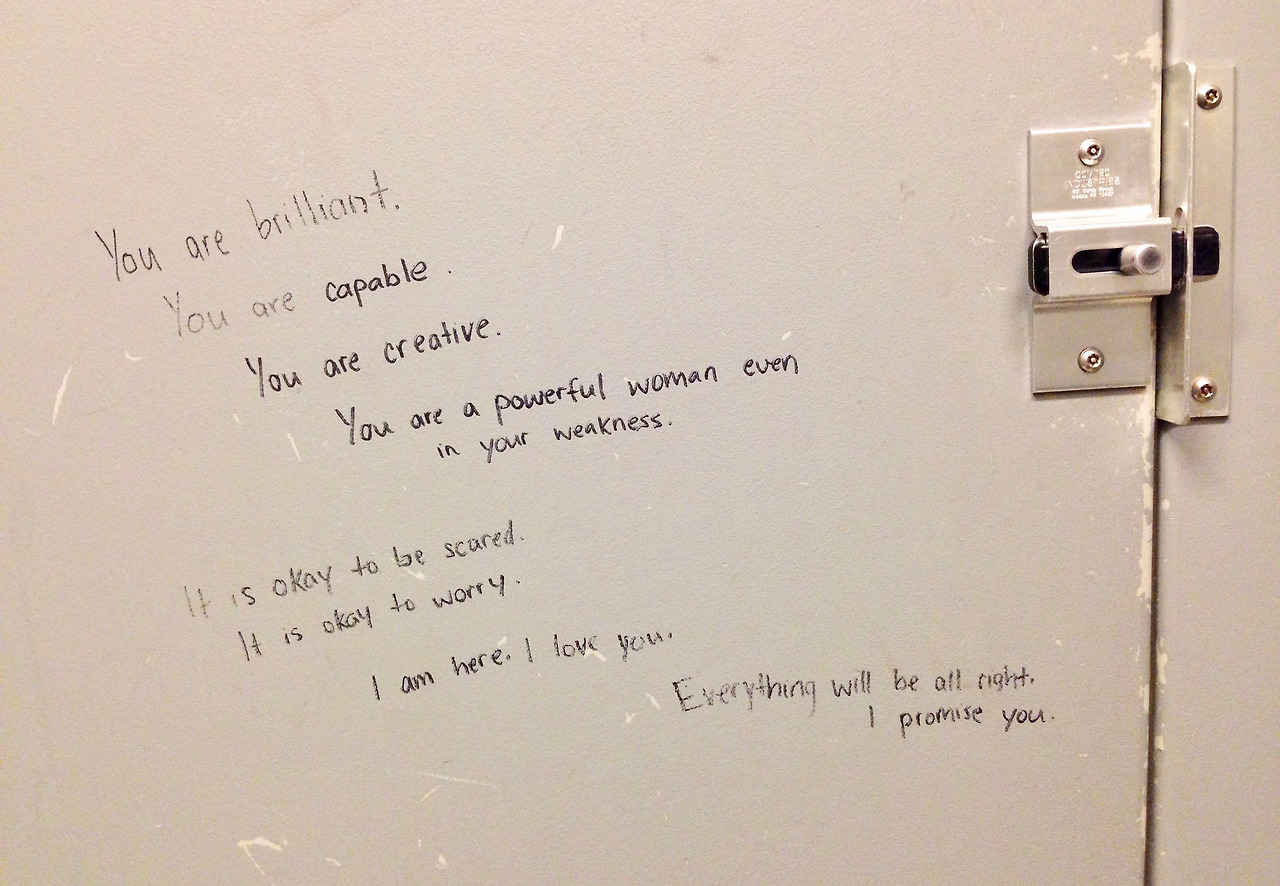 You are brilliant.
You are capable.
You are creative.
You are a powerful woman even
in your weakness.
It is okay to be scared.
It is okay to worry.
I am here. I love you.
Everything will be all right.
I promise you.
INDUSTRIES